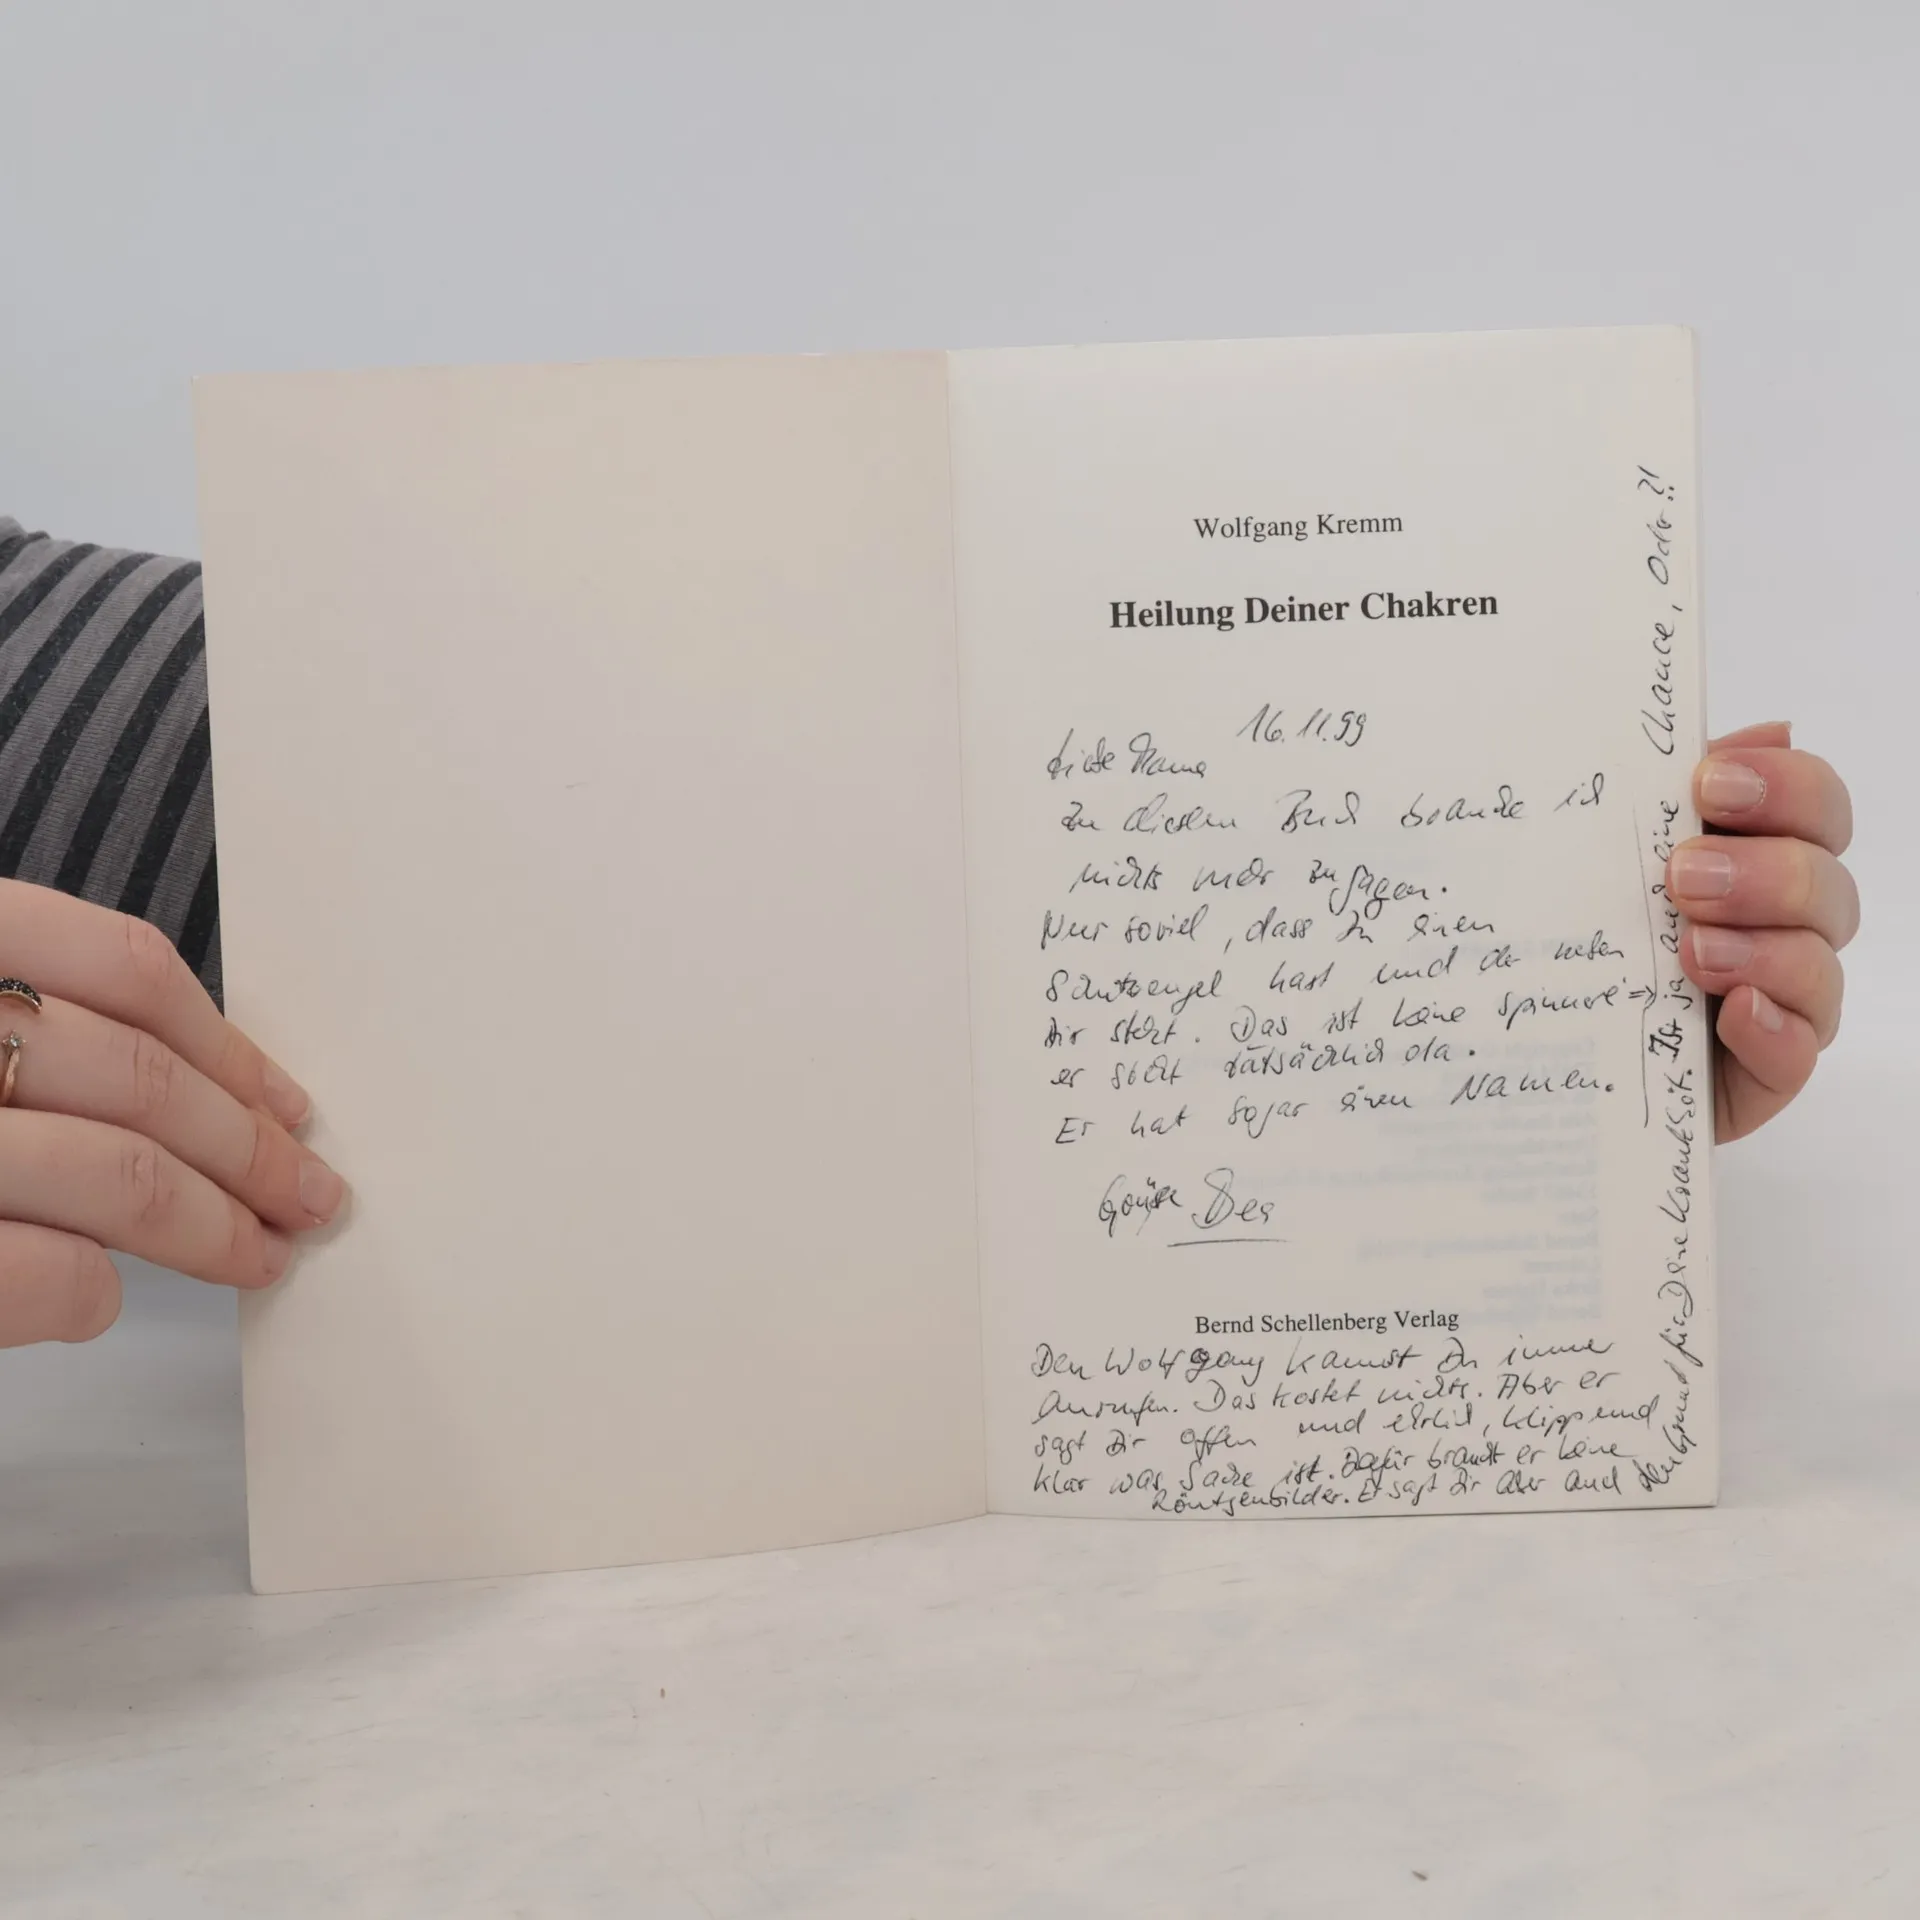 Wolfgang Kremm
Heilung Deiner Chakren
16.11.99
Liebe Mama
zu diesem Buch brauche ich
nichts mehr zu sagen.
Nur soviel, dass Du einen
Schutzengel hast und der neben
Dir steht. Das ist keine spinnere
er steht tatsächlich da.
Er hat sogar einen Namen.
Grüße Bea
Bernd Schellenberg Verlag
Den Wolfgang kannst Du immer
Anrufen. Das kostet nichts. Aber er
sagt Dir offen und ehrlich, klipp und
klar was Sache ist. Dafür braucht er keine
Röntgenbilder. Er sagt Dir aber auch
den Grund für Deine Krankheit. Ist ja auch eine Chance, Oder?!